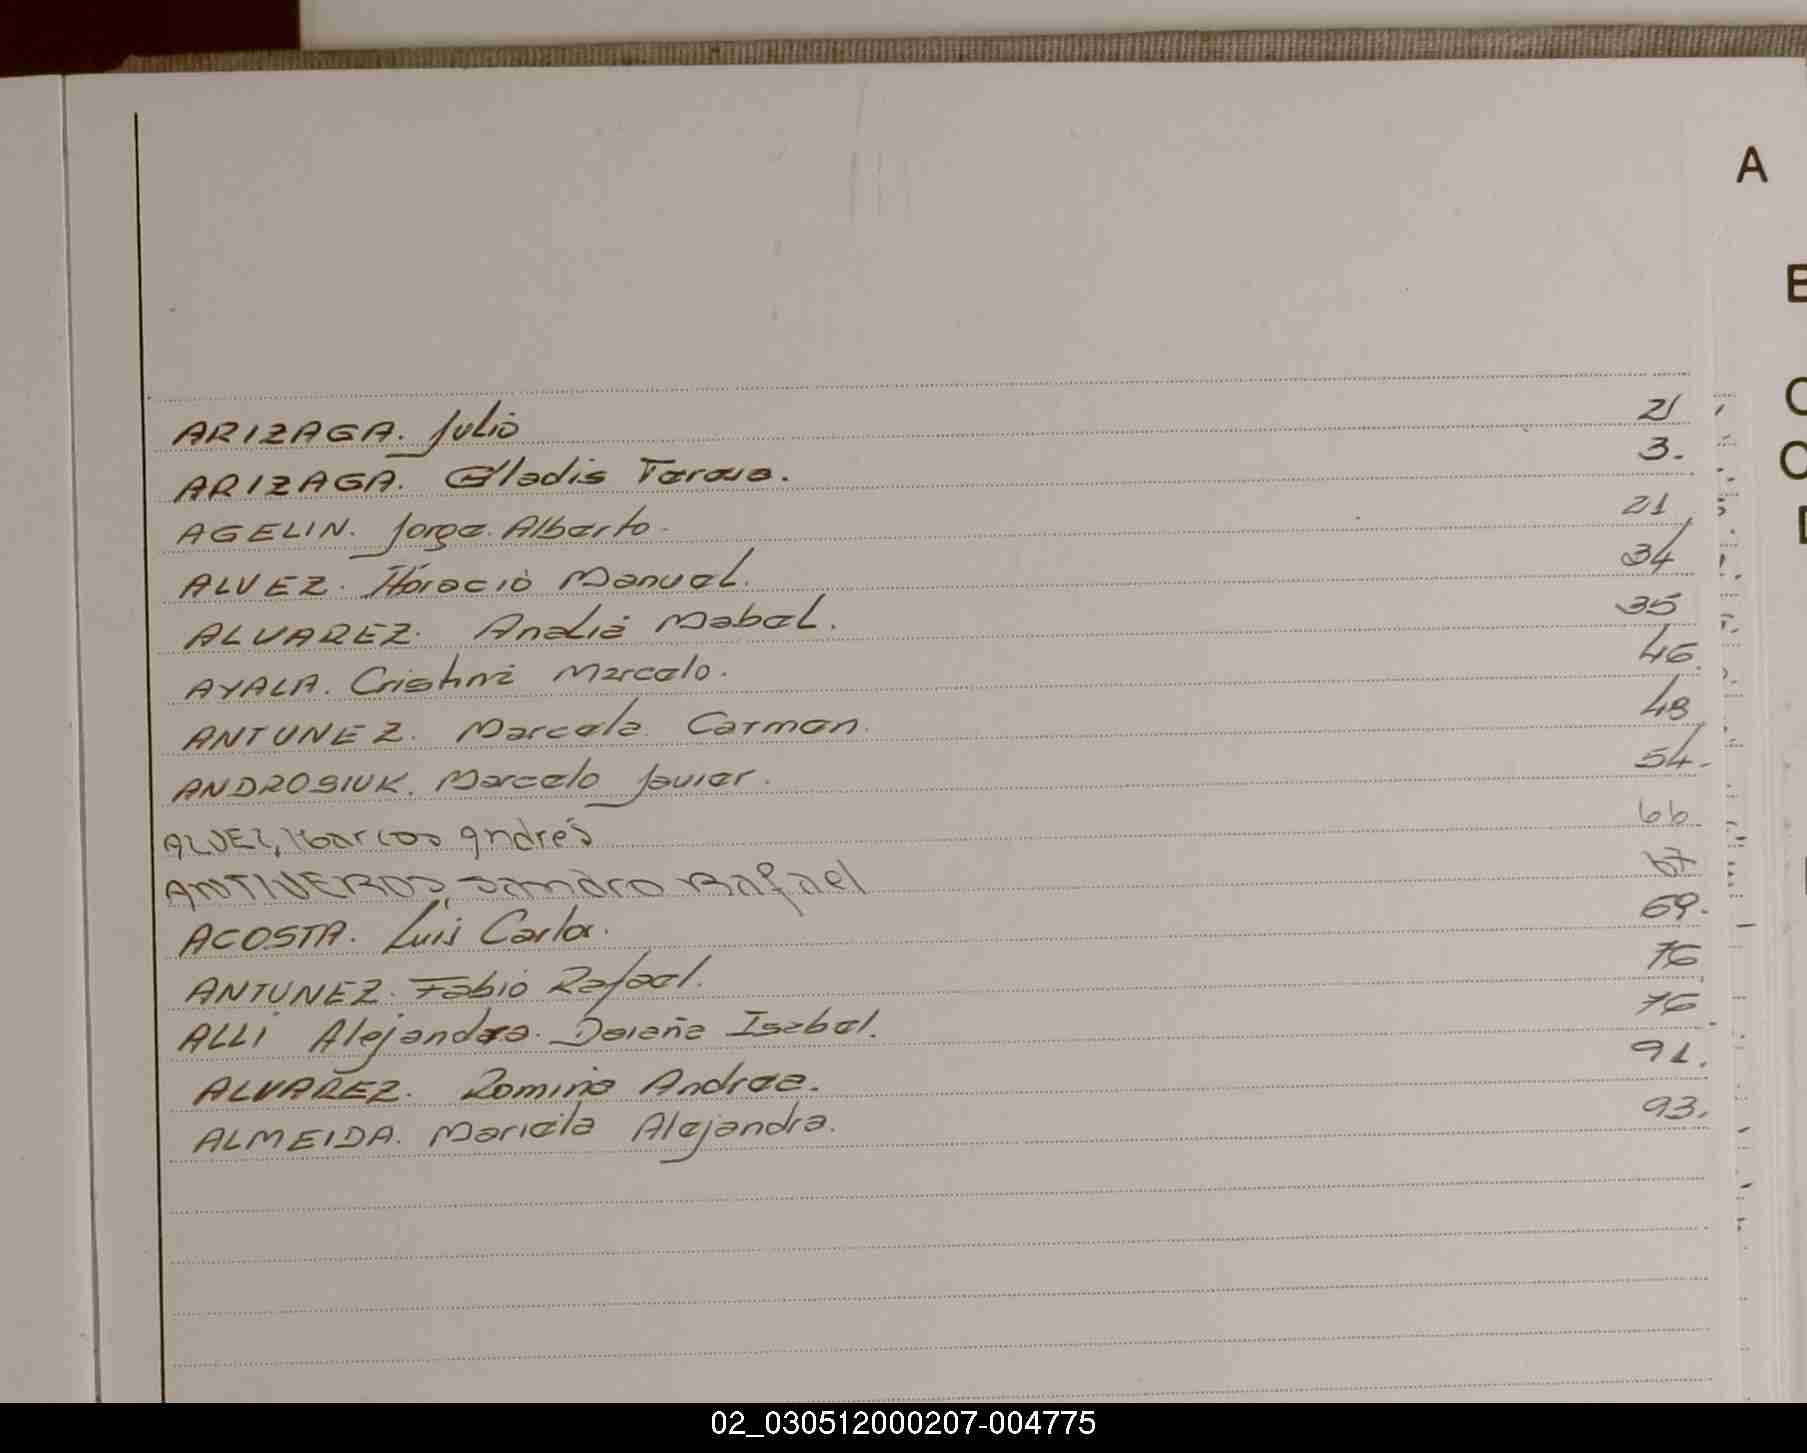 A
B
C
D
ARIZAGA. Julio 21
ARIZAGA. Gladis Teresa. 3.
AGELIN. Jorge Alberto 21
ALVEZ. Horacio Manuel. 34
ALVAREZ. Analia Mabel. 35
AYALA. Cristina Marcelo. 46
ANTUNEZ. Marcela Carmen. 48
ANDROSIUK. Marcelo Javier. 54.
ALVEZ, Marcos Andrés 66
ANTIVEROS, Sandro Rafael 67
ACOSTA. Luis Carlos. 69.
ANTUNEZ. Fabio Rafael. 76
ALLI Alejandra. Daiana Isabel. 76
ALVAREZ. Romina Andrea. 91.
ALMEIDA. Mariela Alejandra. 93.
02_030512000207-004775